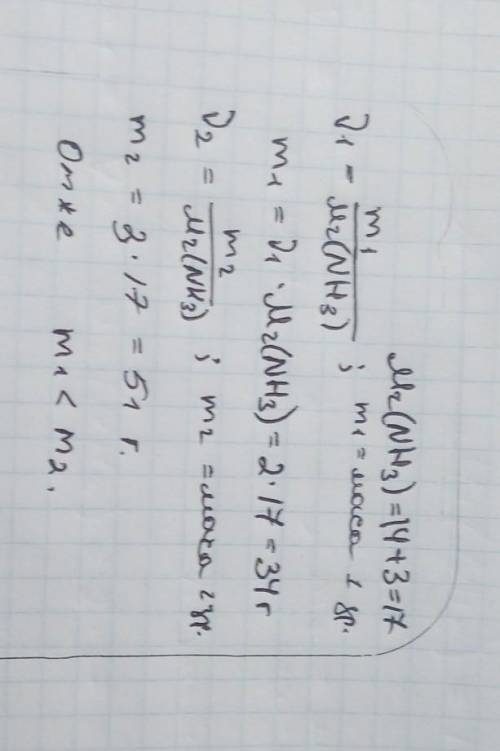 Mr(NH3) = 14+3 = 17
ν1 = m1/Mr(NH3) ; m1 = маса 1 зр.
m1 = ν1 · Mr(NH3) = 2·17 = 34 г
ν2 = m2/Mr(NH3) ; m2 = маса 2 зр.
m2 = 3·17 = 51 г.
Отже m1 < m2.